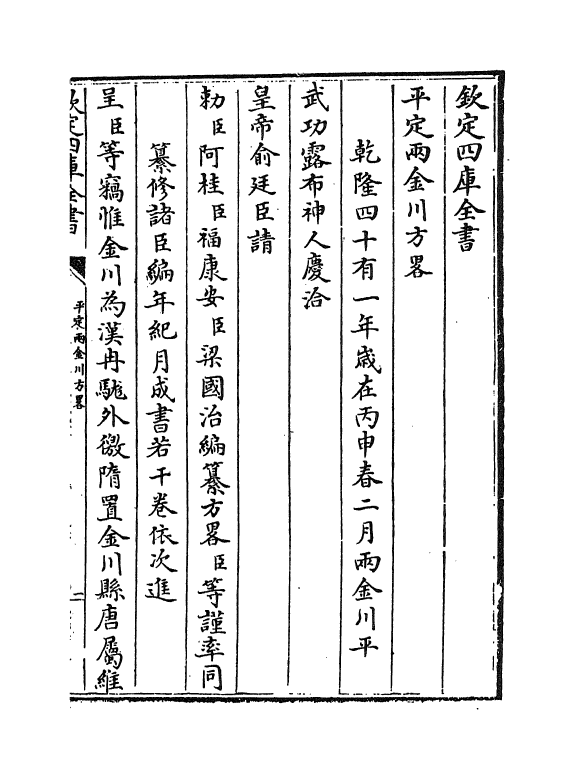 欽定四庫全書
平定兩金川方畧
乾隆四十有一年歲在丙申春二月兩金川平
武功露布神人慶洽
皇帝俞廷臣請
勅臣阿桂臣福康安臣梁國治編纂方畧臣等謹率同
纂修諸臣編年紀月成書若干卷依次進
呈臣等竊惟金川為漢冉駹外徼隋置金川縣唐屬維
欽定四庫全書
平定兩金川方畧